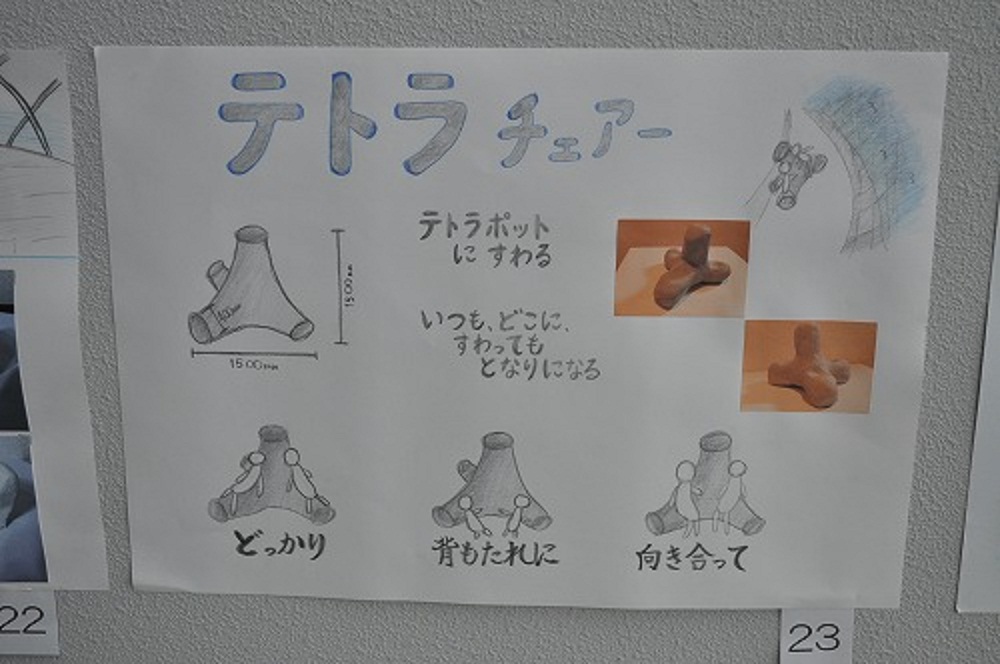 テトラチェアー
テトラポット
に すわる
いつも、どこに、
すわっても
となりになる
1500mm
400mm
1500mm
どっかり
背もたれに
向き合って
22
23